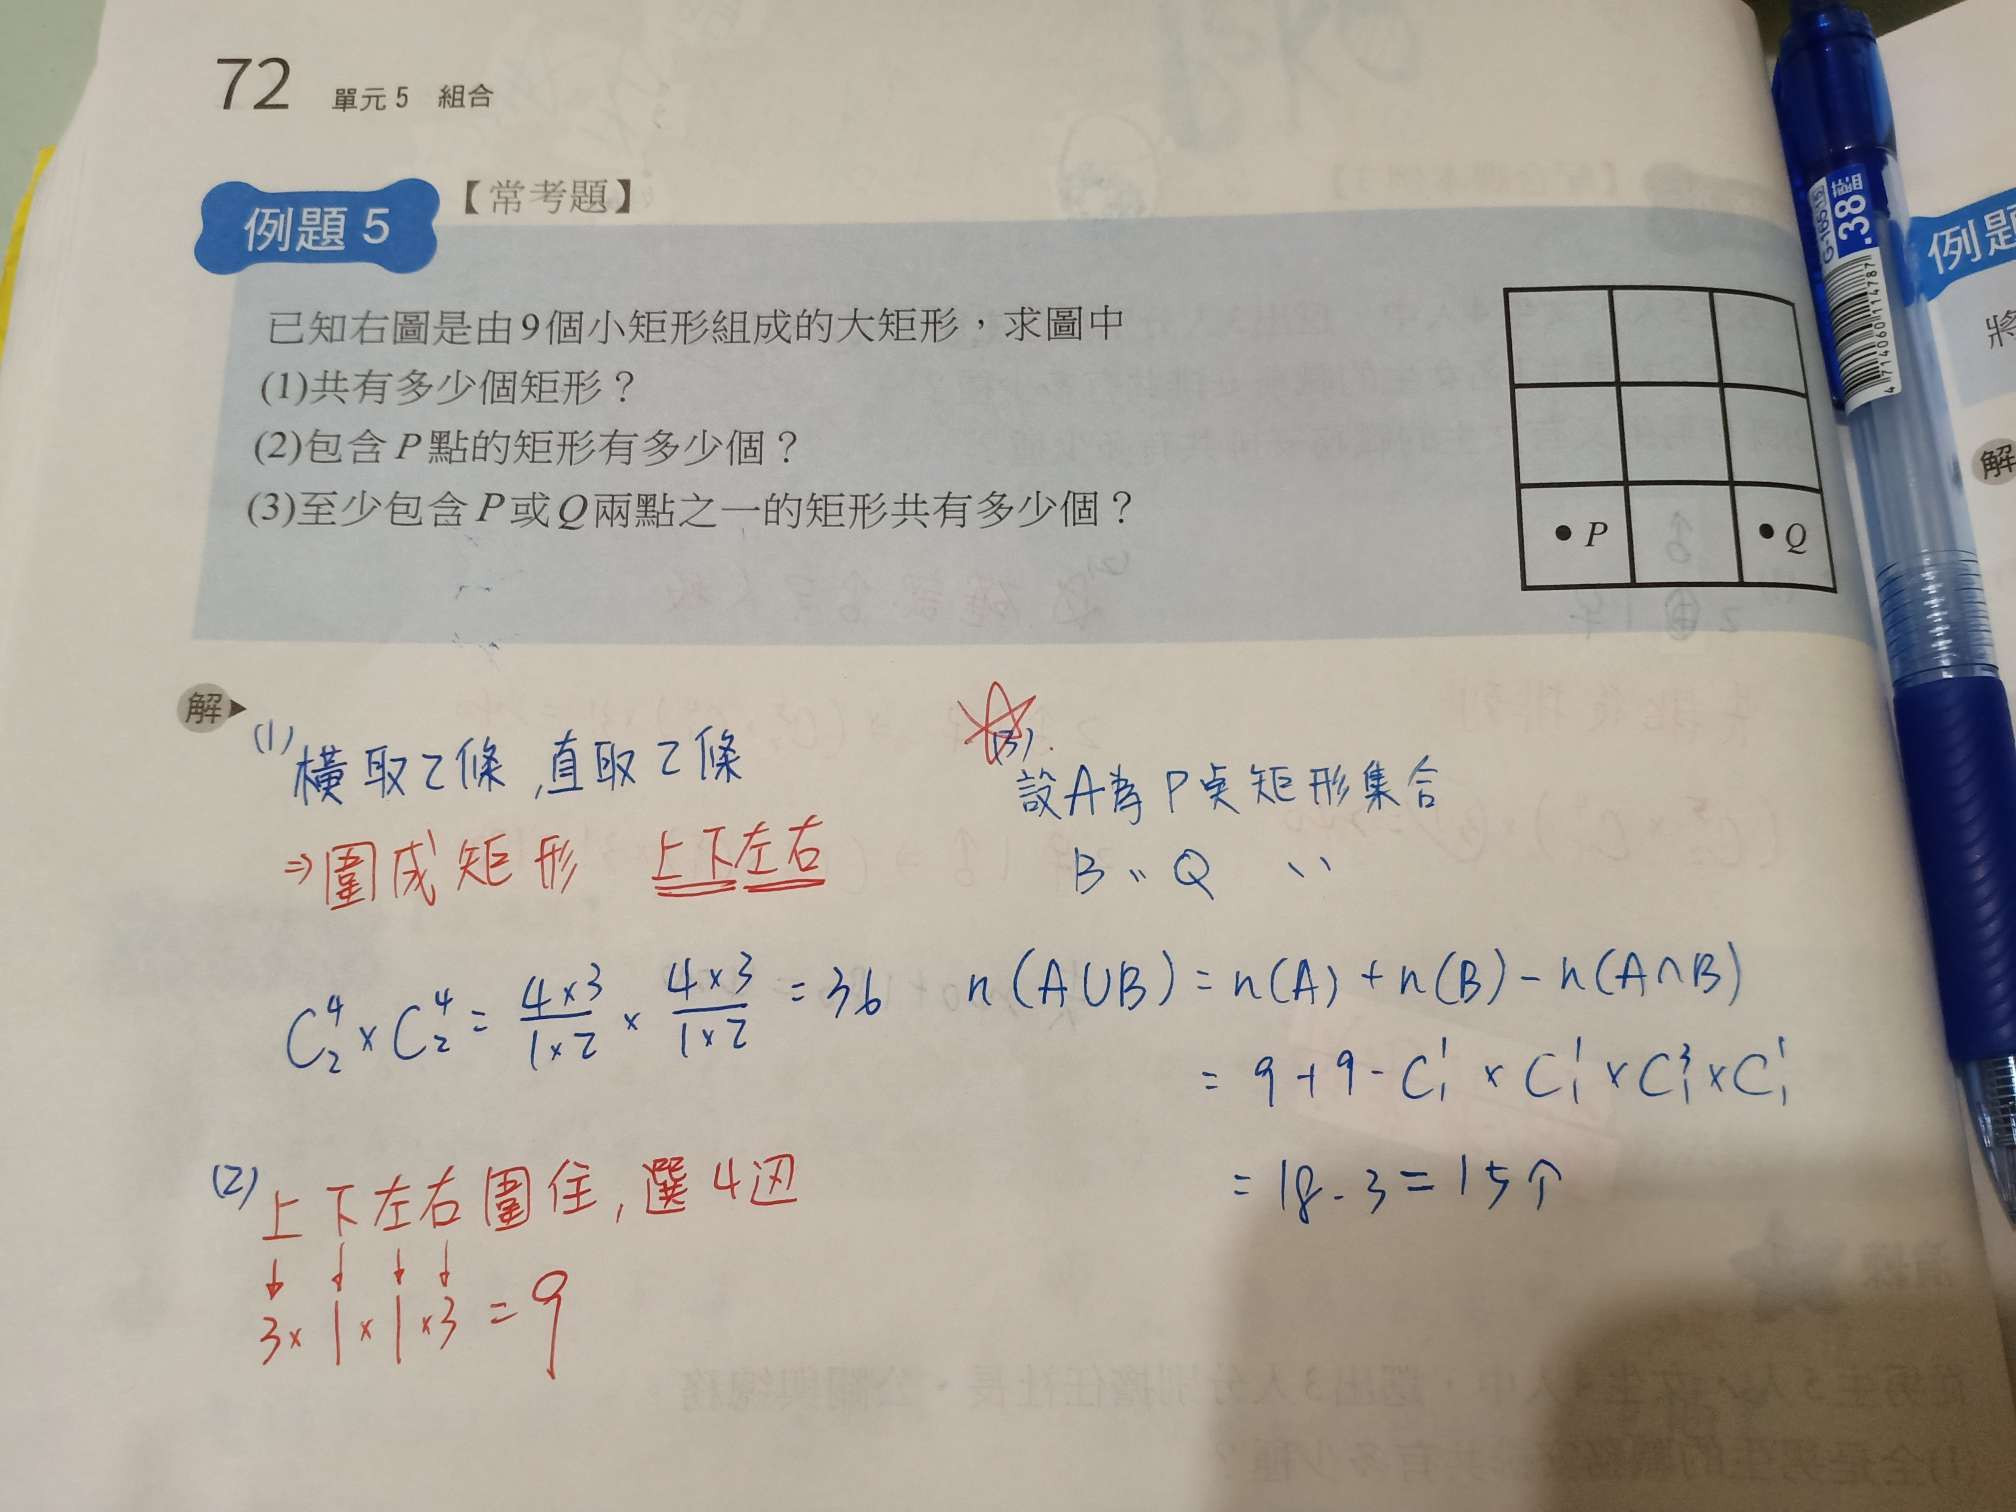 72 單元5 組合
例題 5 【常考題】
已知右圖是由9個小矩形組成的大矩形，求圖中
(1)共有多少個矩形？
(2)包含P點的矩形有多少個？
(3)至少包含P或Q兩點之一的矩形共有多少個？
P Q
解
(1) 橫取2條,直取2條
⇒圍成矩形 上下左右
C⁴₂×C⁴₂= 4×3/1×2 × 4×3/1×2 =36
(2) 上下左右圍住,選4边
↓ ↓ ↓ ↓
3×1×1×3=9
(3).
設A為P点矩形集合
B 〃 Q 〃
n(A∪B)=n(A)+n(B)-n(A∩B)
=9+9-C¹₁×C¹₁×C³₁×C¹₁
=18-3=15个
.38
G-1651S
4714060114787
例題
將
解